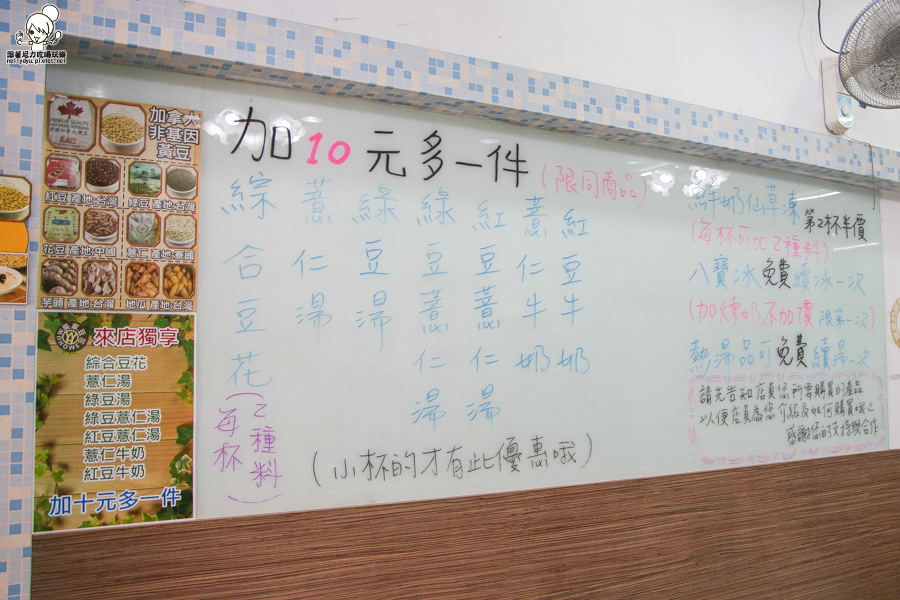 跟著尼力吃喝玩樂
nellydyu.pixnet.net
加拿大
非基因
黃豆
紅豆 產地:台灣
綠豆 產地:台灣
花豆 產地:中國
薏仁 產地:泰國
芋頭 產地:台灣
地瓜 產地:台灣
來店獨享
綜合豆花
薏仁湯
綠豆湯
綠豆薏仁湯
紅豆薏仁湯
薏仁牛奶
紅豆牛奶
加十元多一件
加10元多一件
(限同商品)
綜合豆花
(每杯2種料)
薏仁湯
綠豆湯
綠豆薏仁湯
紅豆薏仁湯
薏仁牛奶
紅豆牛奶
(小杯的才有此優惠哦)
鮮奶仙草凍 第2杯半價
(每杯可加2種料)
八寶冰免費續冰一次
(加煉奶不加價 限第一次)
熱湯品可免費續湯一次
請先告知店員您所需購買的產品
以便店員為您介紹及如何購買哦~
感謝您的支持與合作